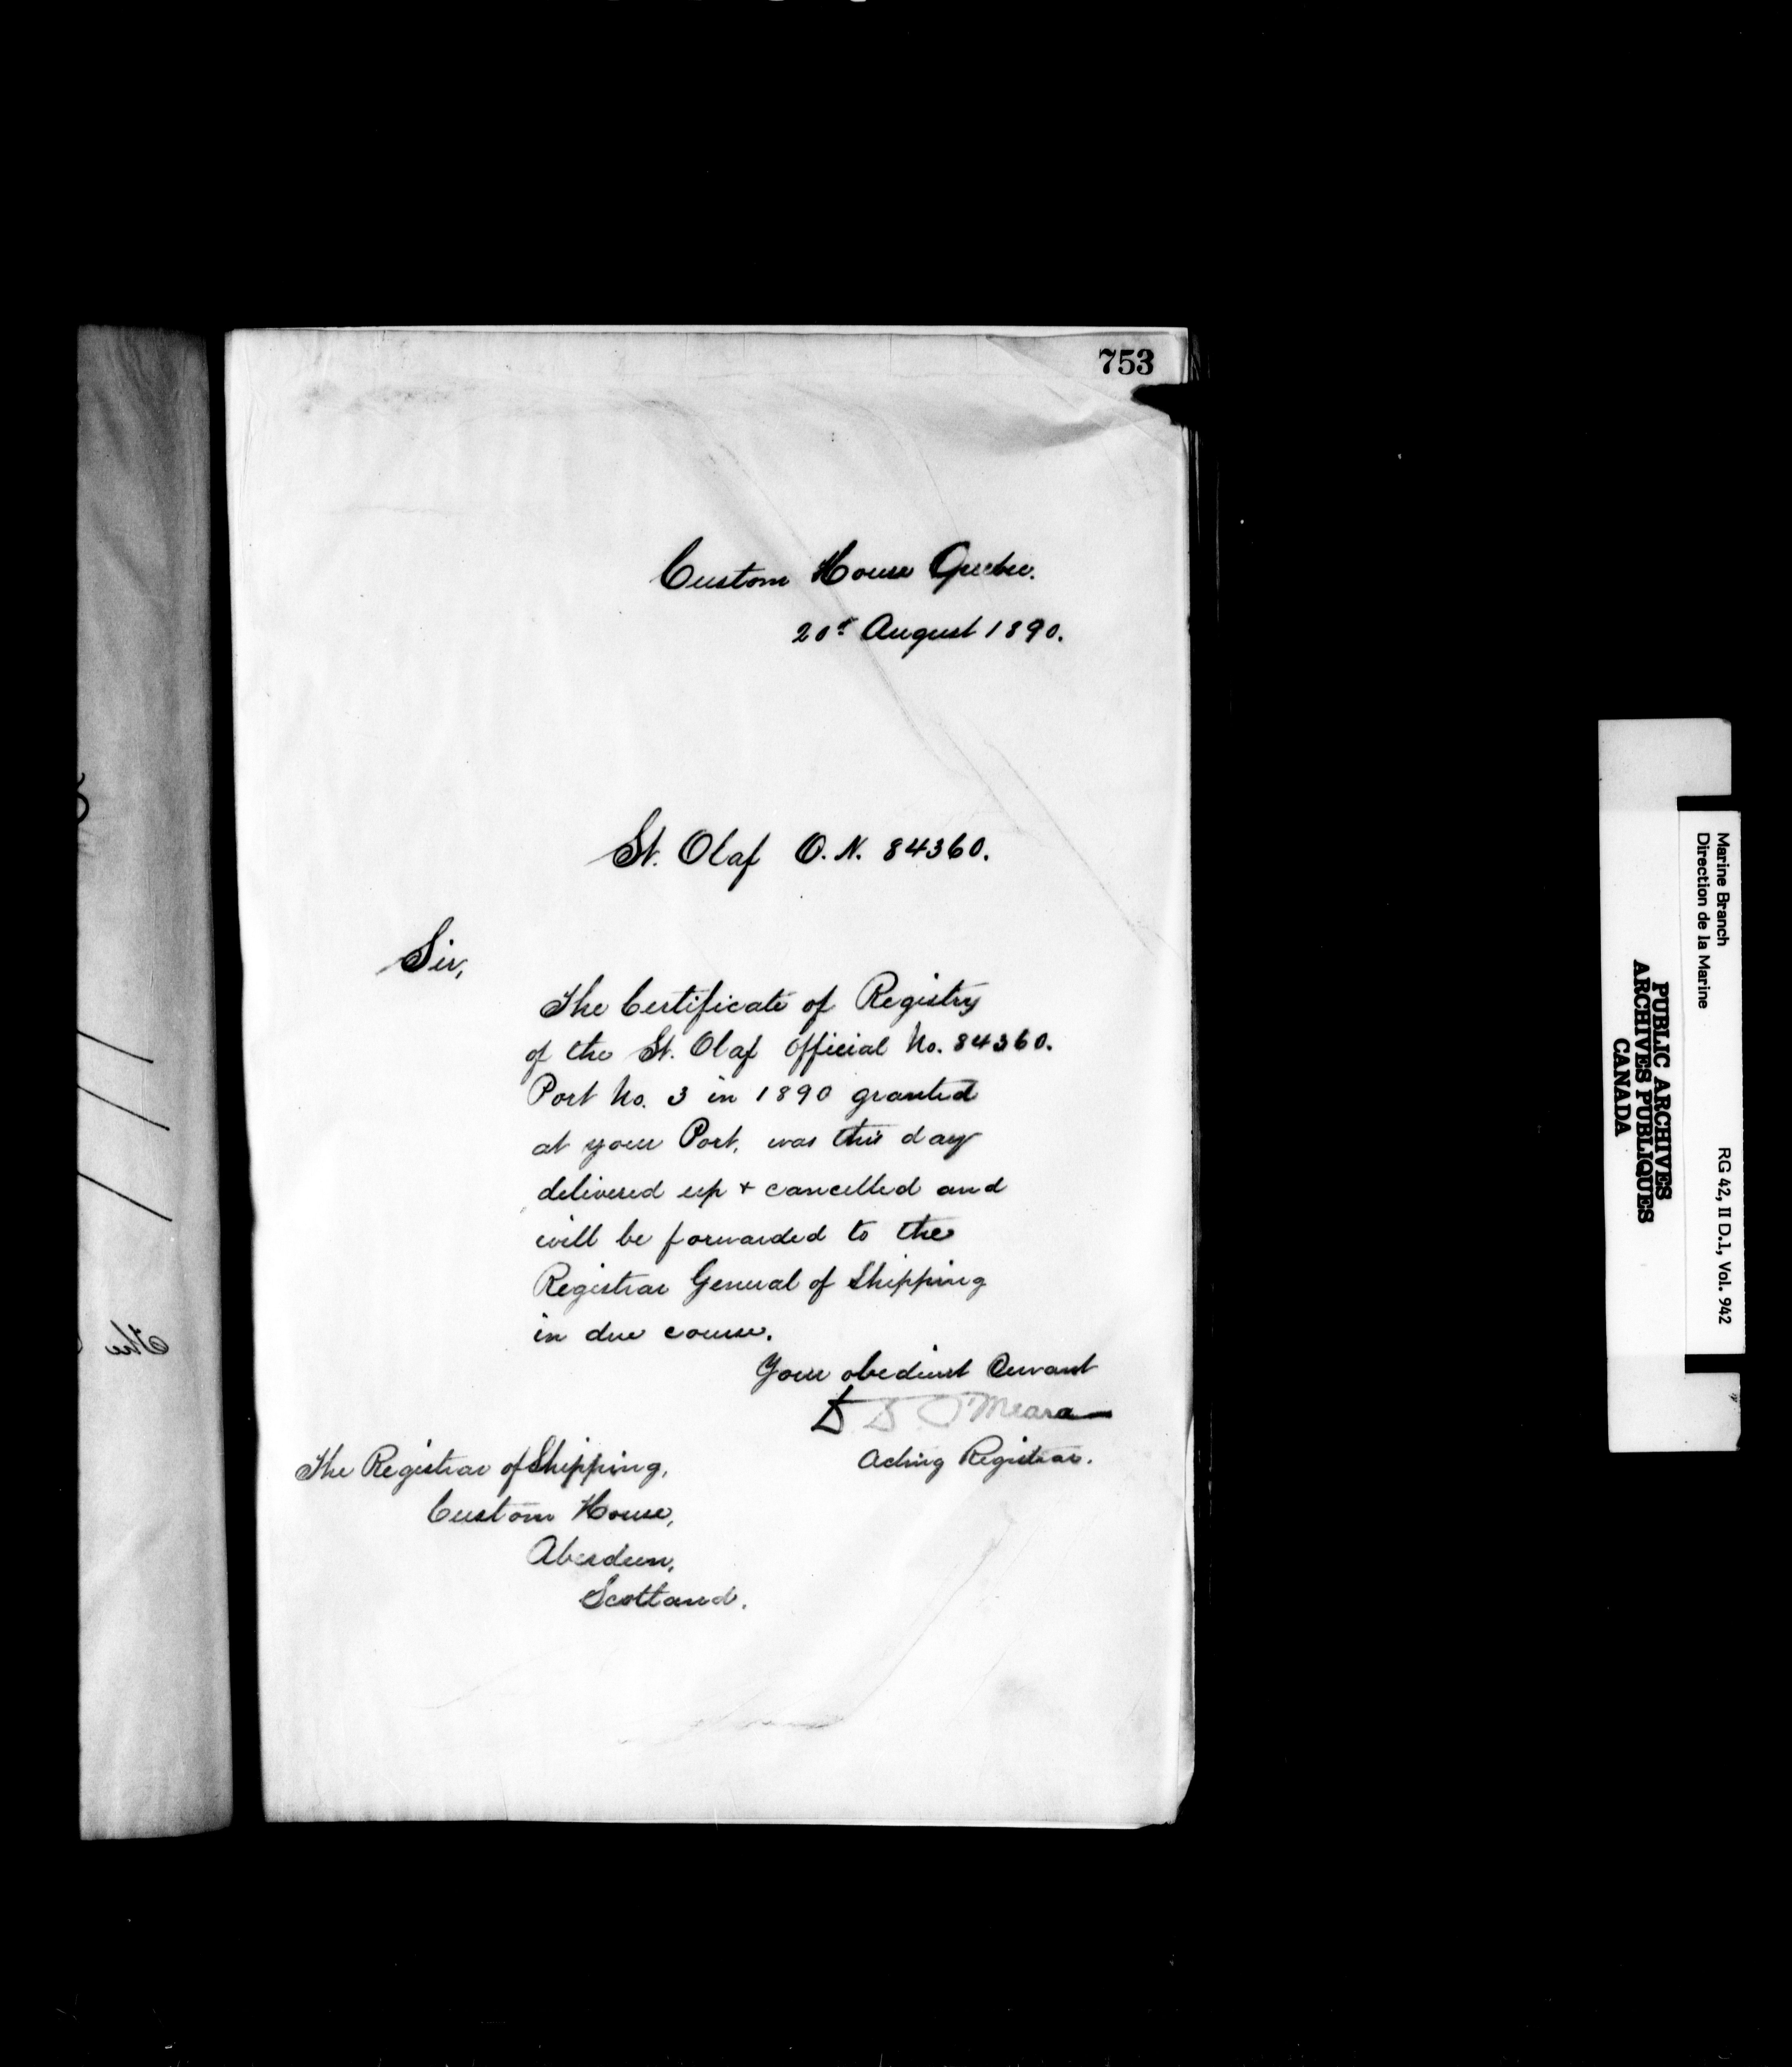 753
Custom House Quebec.
20th August 1890.
St. Olaf O.N. 84360.
Sir,
The Certificate of Registry
of the St. Olaf Official No. 84360.
Port No. 3 in 1890 granted
at your Port, was this day
delivered up + cancelled and
will be forwarded to the
Registrar General of Shipping
in due course.
Your obedient Servant
D D O'Meara
Acting Registrar.
The Registrar of Shipping,
Custom House,
Aberdeen,
Scotland.
The
Marine Branch
Direction de la Marine
RG 42, II D.1, Vol. 942
PUBLIC ARCHIVES
ARCHIVES PUBLIQUES
CANADA